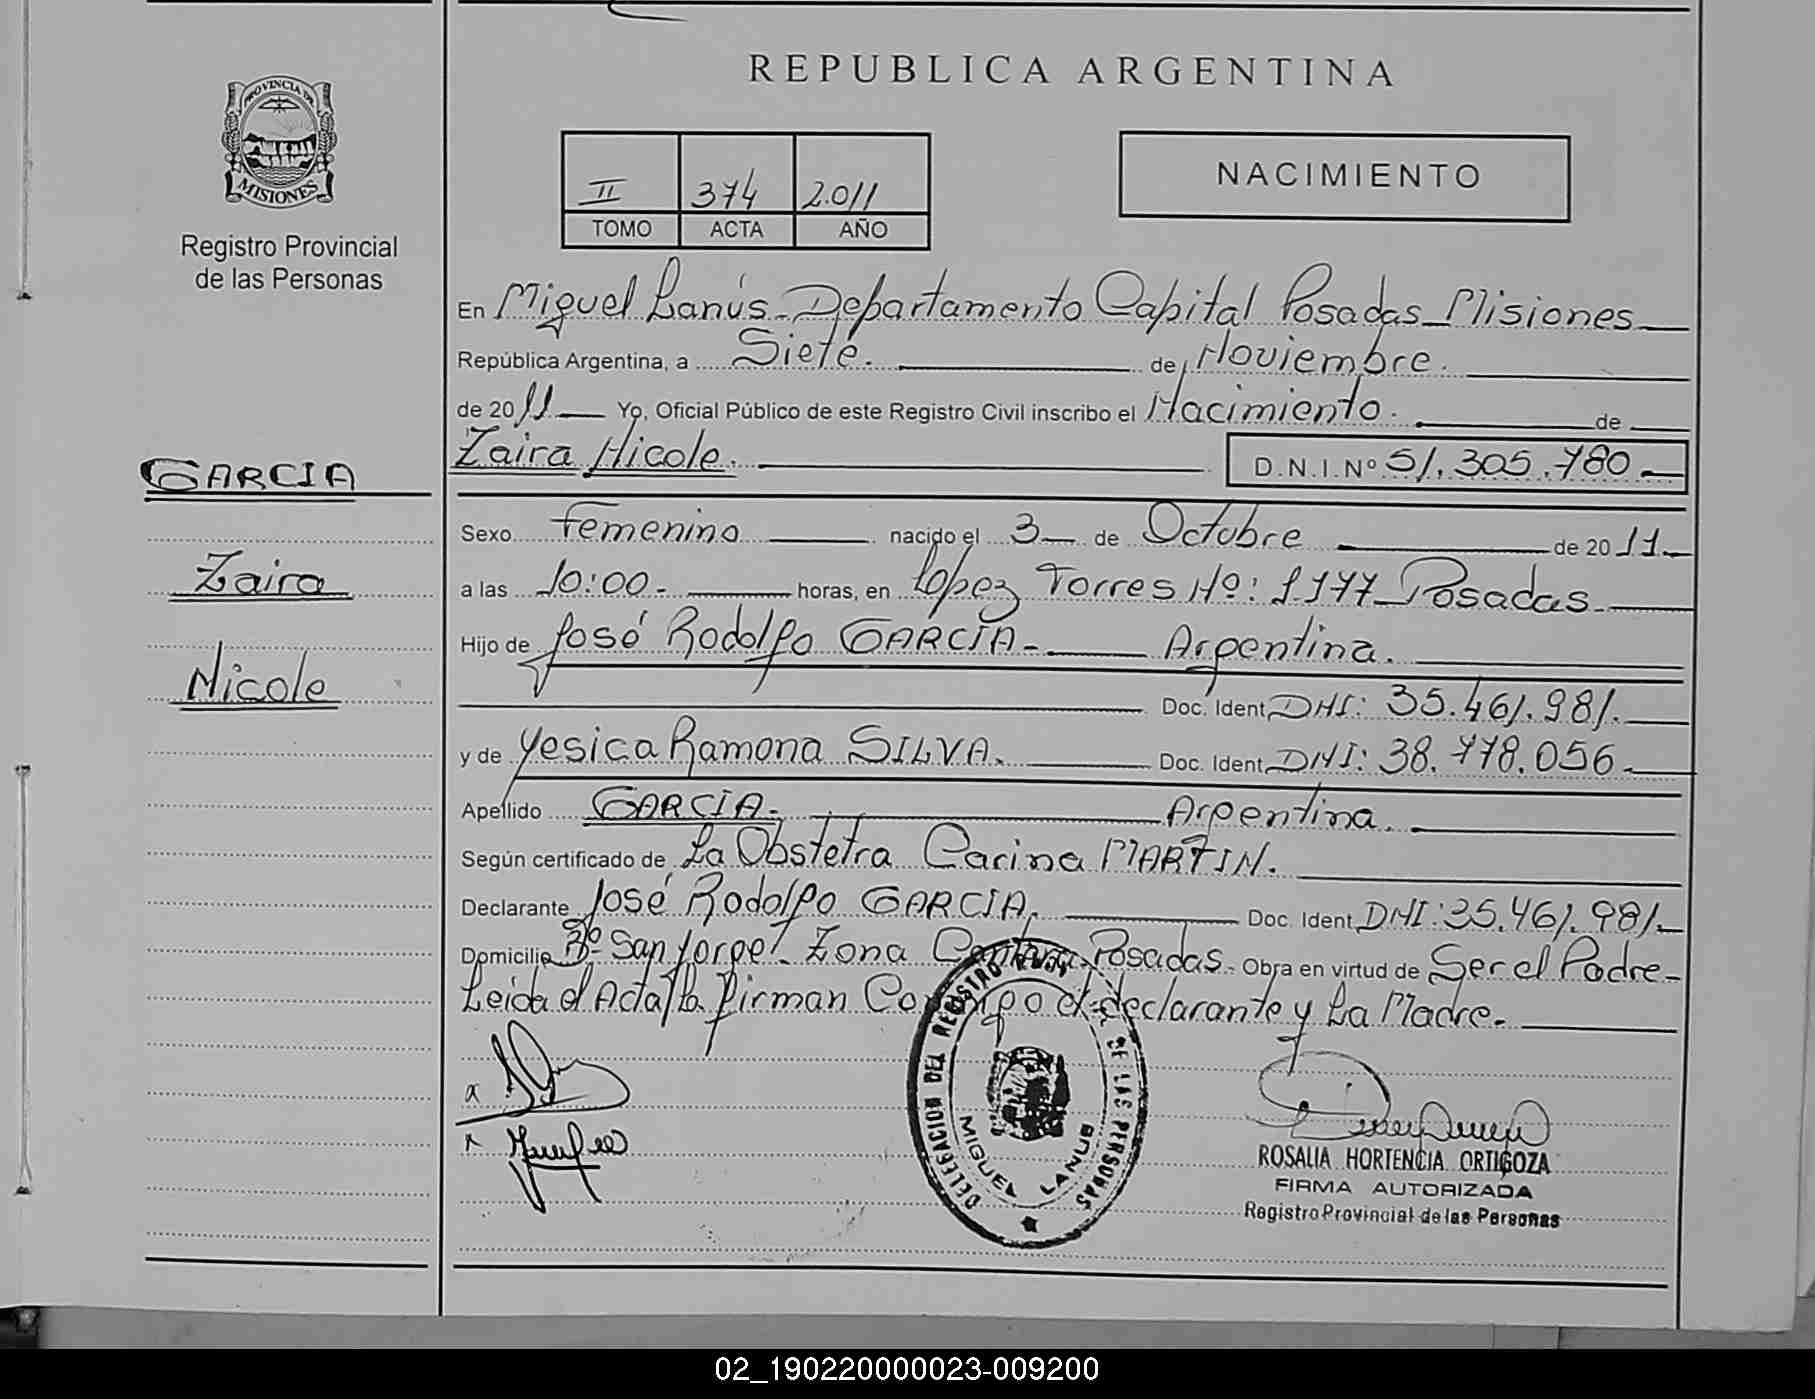 REPUBLICA ARGENTINA
PROVINCIA DE
MISIONES
Registro Provincial
de las Personas
II 374 2.011
TOMO ACTA AÑO
NACIMIENTO
En Miguel Lanús - Departamento Capital Posadas - Misiones
República Argentina, a Siete. de Noviembre.
de 2011 Yo, Oficial Público de este Registro Civil inscribo el Nacimiento. de
Zaira Nicole. D.N.I. Nº 51.305.780
GARCIA
Zaira
Nicole
Sexo Femenino nacido el 3 de Octubre de 2011
a las 10:00 - horas, en Lopez Torres Nº: 1177 - Posadas.
Hijo de José Rodolfo GARCÍA - Argentina.
Doc. Ident DNI: 35.461.981.
y de Yesica Ramona SILVA. Doc. Ident DNI: 38.778.056
Apellido GARCÍA - Argentina.
Según certificado de La Obstetra Carina MARTIN.
Declarante José Rodolfo GARCÍA. Doc. Ident DNI: 35.461.981.
Domicilio Bº San Jorge - Zona Posadas. Obra en virtud de Ser el Padre -
Leída el Acta, la firman Conmigo el declarante y La Madre.
DELEGACION DEL REGISTRO DE LAS PERSONAS
MIGUEL LANUS
ROSALIA HORTENCIA ORTIGOZA
FIRMA AUTORIZADA
Registro Provincial de las Personas
02_190220000023-009200